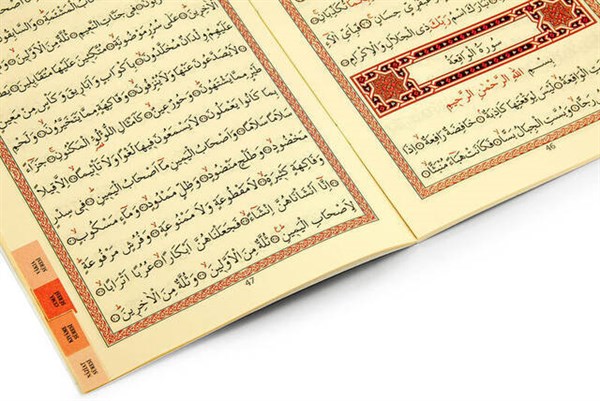 حِسَانٍ فَبِاَيِّ اٰلَٓاءِ
تَبَارَكَ اسْمُ رَبِّكَ ذِي الْجَلَالِ وَالْاِكْرَامِ
سُورَةُ الْوَاقِعَةِ
بِسْمِ اللّٰهِ الرَّحْمٰنِ الرَّحِيمِ
الْوَاقِعَةُ لَيْسَ لِوَقْعَتِهَا كَاذِبَةٌ خَافِضَةٌ رَافِعَةٌ اِذَا
رَجًّا وَبُسَّتِ الْجِبَالُ بَسًّا فَكَانَتْ هَبَٓاءً مُنْبَثًّا
46
فِي جَنَّاتِ النَّعِيمِ ثُلَّةٌ مِنَ الْاَوَّلِينَ
الْاٰخِرِينَ عَلٰى سُرُرٍ مَوْضُونَةٍ مُتَّكِـِٔينَ عَلَيْهَا مُتَقَابِلِينَ
عَلَيْهِمْ وِلْدَانٌ مُخَلَّدُونَ بِاَكْوَابٍ وَاَبَارِيقَ وَكَأْسٍ مِنْ مَعِينٍ
لَا يُصَدَّعُونَ عَنْهَا وَلَا يُنْزِفُونَ وَفَاكِهَةٍ مِمَّا يَتَخَيَّرُونَ وَلَحْمِ
طَيْرٍ مِمَّا يَشْتَهُونَ وَحُورٌ عِينٌ كَاَمْثَالِ اللُّؤْلُؤِ الْمَكْنُونِ جَزَٓاءً
بِمَا كَانُوا يَعْمَلُونَ لَا يَسْمَعُونَ فِيهَا لَغْوًا وَلَا تَأْثِيمًا اِلَّا قِيلًا
سَلَامًا سَلَامًا وَاَصْحَابُ الْيَمِينِ مَٓا اَصْحَابُ الْيَمِينِ فِي سِدْرٍ
مَخْضُودٍ وَطَلْحٍ مَنْضُودٍ وَظِلٍّ مَمْدُودٍ وَمَٓاءٍ مَسْكُوبٍ
وَفَاكِهَةٍ كَثِيرَةٍ لَا مَقْطُوعَةٍ وَلَا مَمْنُوعَةٍ وَفُرُشٍ مَرْفُوعَةٍ
اِنَّٓا اَنْشَأْنَاهُنَّ اِنْشَٓاءً فَجَعَلْنَاهُنَّ اَبْكَارًا عُرُبًا اَتْرَابًا
لِاَصْحَابِ الْيَمِينِ ثُلَّةٌ مِنَ الْاَوَّلِينَ وَثُلَّةٌ مِنَ الْاٰخِرِينَ
47
VAKIA
SÛRESİ
CUMA
SÛRESİ
KIYAME
SÛRESİ
NAZİAT
SÛRESİ